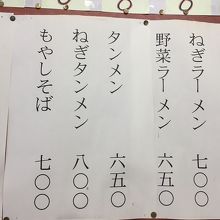 ねぎラーメン 七〇〇
野菜ラーメン 六五〇
タンメン 六五〇
ねぎタンメン 八〇〇
もやしそば 七〇〇